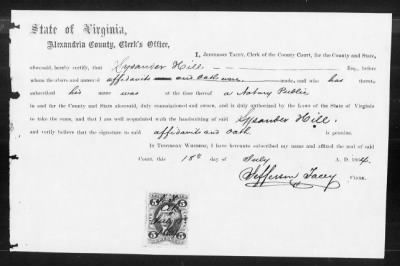 State of Virginia,
Alexandria County, Clerk's Office,
I, JEFFERSON TACEY, Clerk of the County Court, for the County and State,
aforesaid, hereby certify, that Lysander Hill Esq., before
whom the above and annexed affidavits and oath were made, and who has thereto
subscribed his name was at the time thereof a Notary Public
in and for the County and State aforesaid, duly commissioned and sworn, and is duly authorized by the Laws of the State of Virginia
to take the same, and that I am well acquainted with the handwriting of said Lysander Hill,
and verily believe that the signature to said affidavits and oath is genuine.
IN TESTIMONY WHEREOF, I have hereunto subscribed my name and affixed the seal of said
Court, this 18th day of July A. D. 1864.
Jefferson Tacey CLERK.
5 5